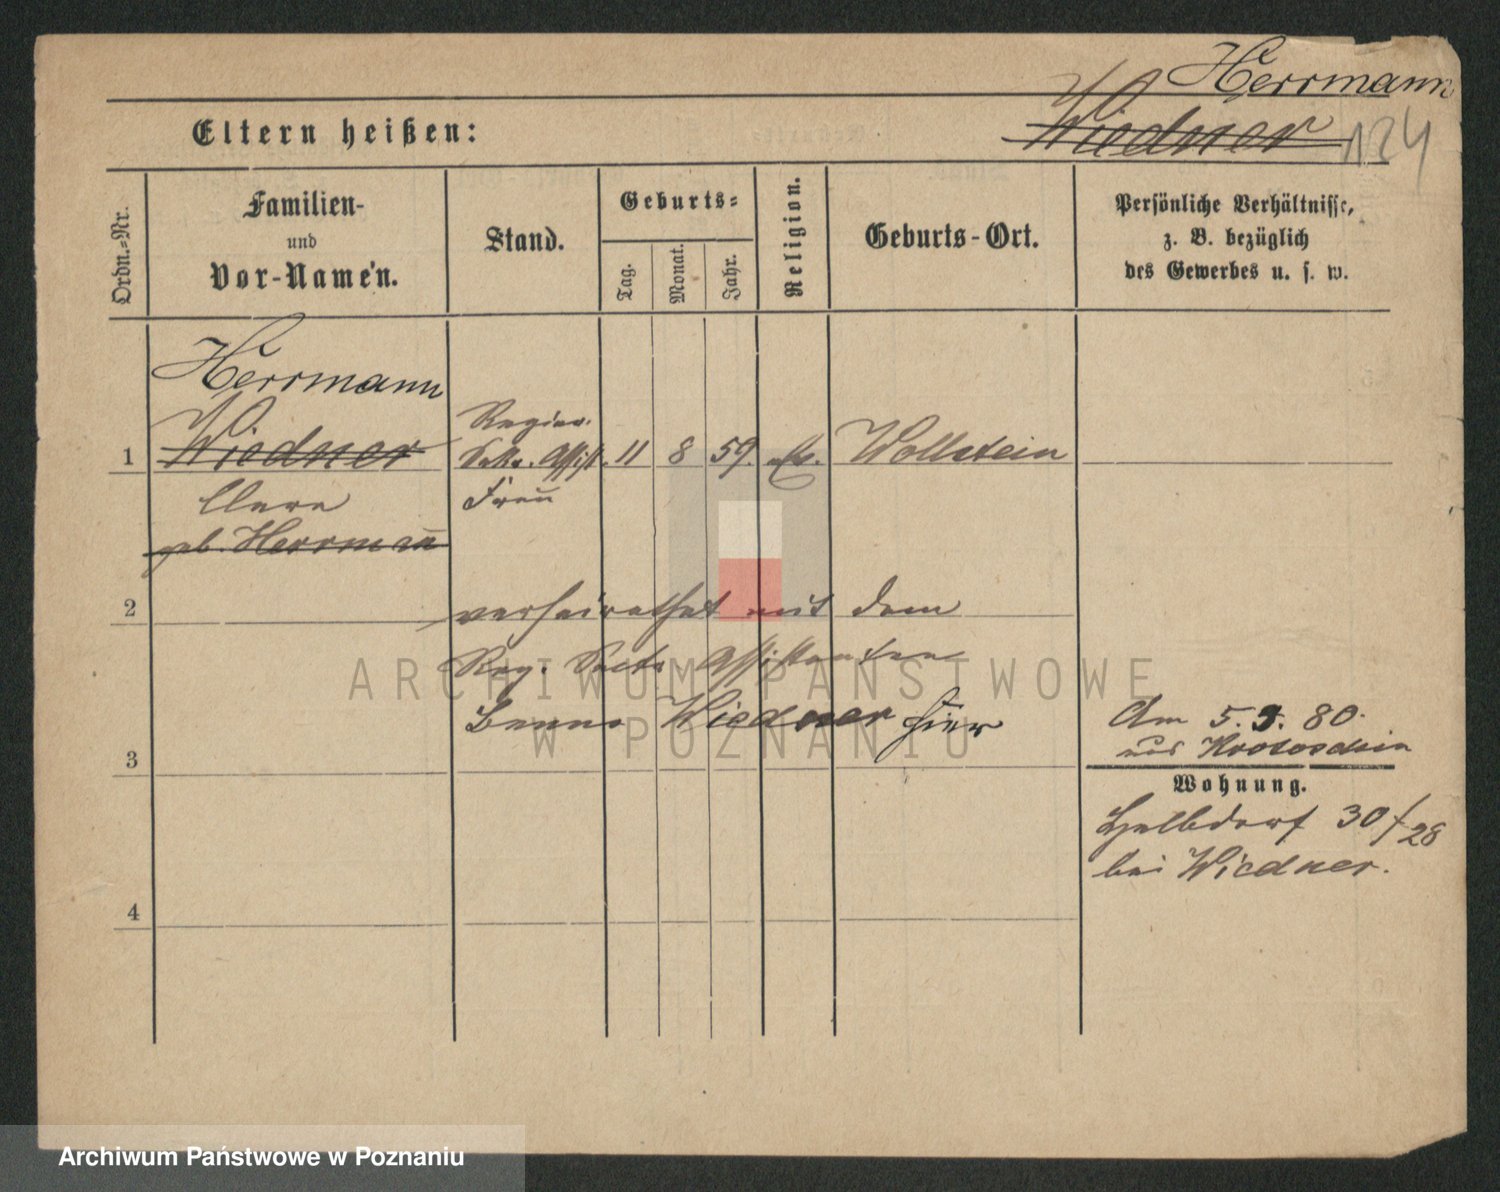 Herrmann
Wiedner
124
Eltern heißen:
Ordn.=Nr.
Familien-
und
Vor-Namen.
Stand.
Geburts=
Tag.
Monat.
Jahr.
Religion.
Geburts-Ort.
Persönliche Verhältnisse,
z. B. bezüglich
des Gewerbes u. s. w.
Herrmann
1 Wiedner Regier. Sekr. Assist. 11 8 59. ev. Wollstein
Clara Frau
geb. Herrmann
2 verheirathet mit dem
Reg. Secr. Assistenten
Benno Wiedner hier
Am 5. 9. 80.
aus Krotoschin
3
Wohnung.
Halbdorf 30/28
bei Wiedner.
4
ARCHIWUM PAŃSTWOWE
W POZNANIU
Archiwum Państwowe w Poznaniu